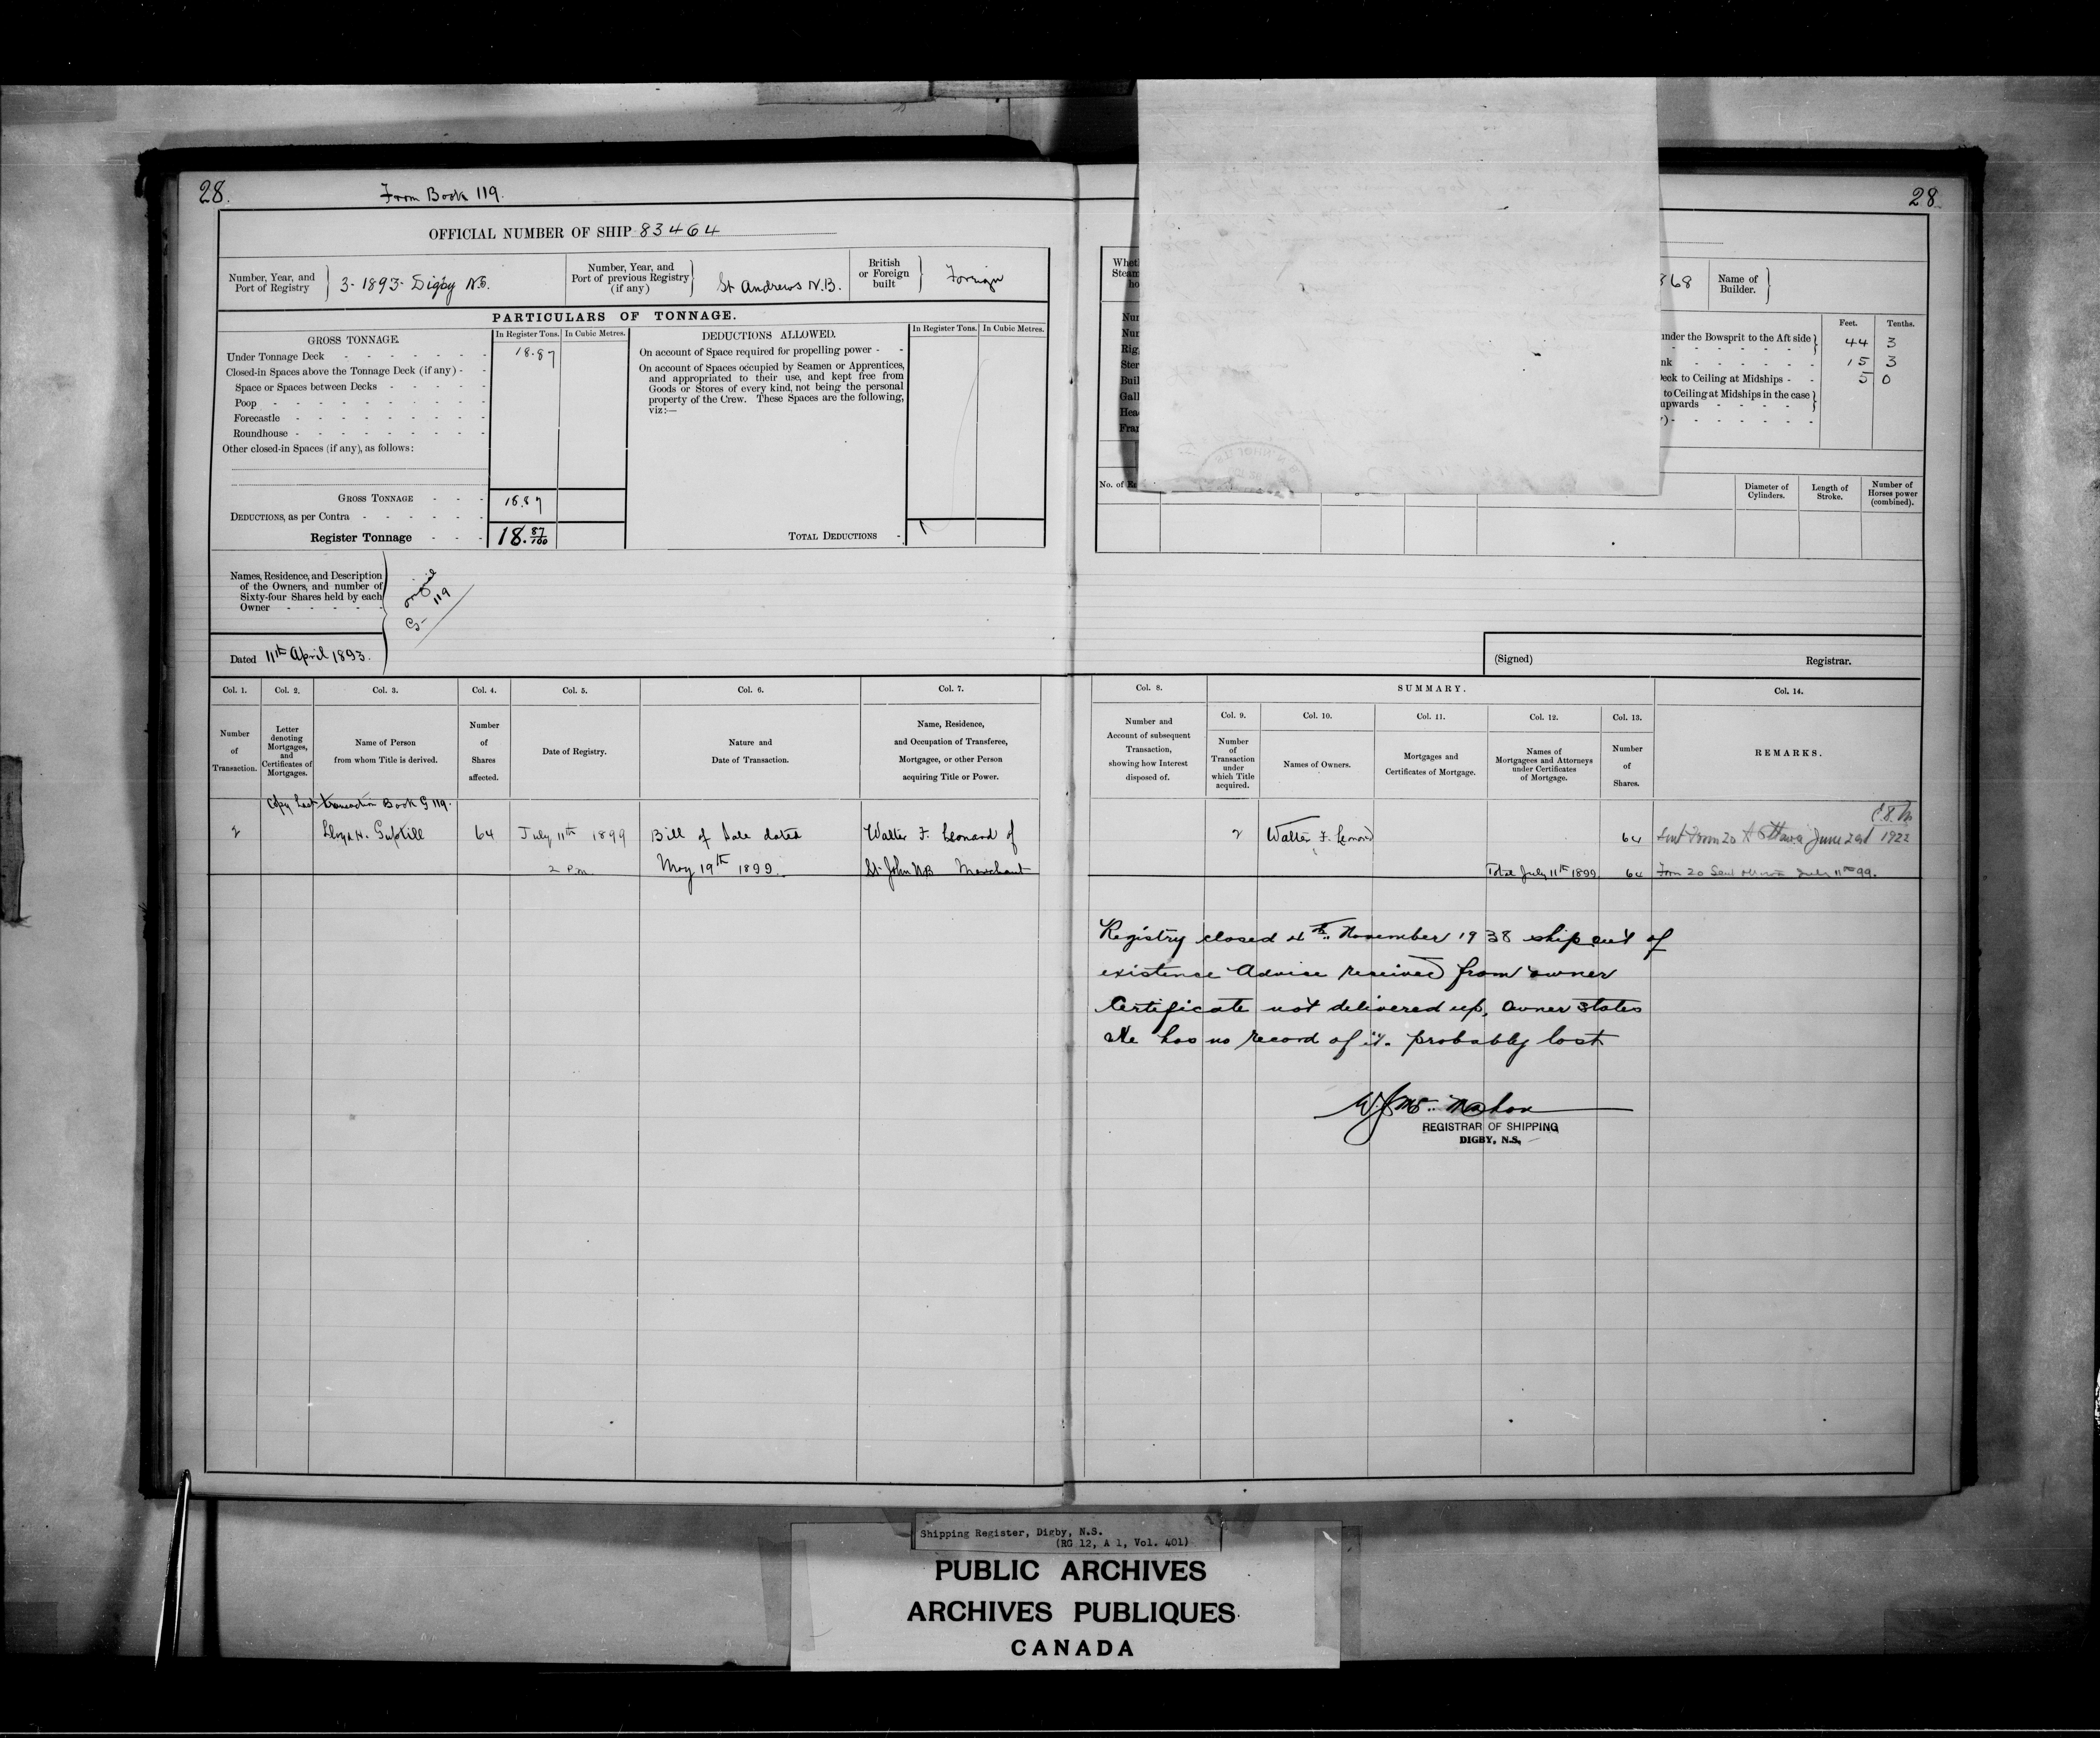 28.
From Book 119.
OFFICIAL NUMBER OF SHIP 83464
Number, Year, and
Port of Registry
3-1893-Digby N.S.
Number, Year, and
Port of previous Registry
(if any)
St Andrews N.B.
British
or Foreign
built
Foreign
PARTICULARS OF TONNAGE.
GROSS TONNAGE.
In Register Tons. In Cubic Metres.
Under Tonnage Deck 18.87
Closed-in Spaces above the Tonnage Deck (if any) -
Space or Spaces between Decks
Poop
Forecastle
Roundhouse
Other closed-in Spaces (if any), as follows:
GROSS TONNAGE 18.87
DEDUCTIONS, as per Contra
Register Tonnage 18. 87/100
DEDUCTIONS ALLOWED.
In Register Tons. In Cubic Metres.
On account of Space required for propelling power -
On account of Spaces occupied by Seamen or Apprentices,
and appropriated to their use, and kept free from
Goods or Stores of every kind, not being the personal
property of the Crew. These Spaces are the following,
viz:—
TOTAL DEDUCTIONS
Names, Residence, and Description
of the Owners, and number of
Sixty-four Shares held by each
Owner
original
G- 119
Dated 11th April 1893.
Col. 1. Col. 2. Col. 3. Col. 4. Col. 5. Col. 6. Col. 7.
Number
of
Transaction.
Letter
denoting
Mortgages,
and
Certificates of
Mortgages.
Name of Person
from whom Title is derived.
Number
of
Shares
affected.
Date of Registry.
Nature and
Date of Transaction.
Name, Residence,
and Occupation of Transferee,
Mortgagee, or other Person
acquiring Title or Power.
Copy Last transaction Book G 119.
2 Lloyd H. Guptill 64 July 11th 1899 Bill of Sale dated Walter F. Leonard of
2 P.m. May 19th 1899. St John NB Merchant
28
368
Name of
Builder.
Feet. Tenths.
under the Bowsprit to the Aft side 44 3
nk 15 3
Deck to Ceiling at Midships - 5 0
to Ceiling at Midships in the case
upwards
No. of
Diameter of
Cylinders.
Length of
Stroke.
Number of
Horses power
(combined).
(Signed) Registrar.
Col. 8.
SUMMARY.
Col. 14.
Col. 9. Col. 10. Col. 11. Col. 12. Col. 13.
Number and
Account of subsequent
Transaction,
showing how Interest
disposed of.
Number
of
Transaction
under
which Title
acquired.
Names of Owners.
Mortgages and
Certificates of Mortgage.
Names of
Mortgagees and Attorneys
under Certificates
of Mortgage.
Number
of
Shares.
REMARKS.
2 Walter F. Leonard 64 Sent Form 20 to Ottawa June 2nd 1922
Total July 11th 1899 64 Form 20 Sent Ottawa July 11th 99.
Registry closed 4th November 1938 ship out of
existence Advise received from owner
Certificate not delivered up. Owner states
He has no record of it. probably lost
REGISTRAR OF SHIPPING
DIGBY, N.S.
Shipping Register, Digby, N.S.
(RG 12, A 1, Vol. 401)
PUBLIC ARCHIVES
ARCHIVES PUBLIQUES
CANADA